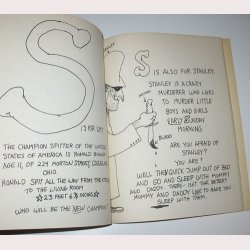 S
IS FOR SPIT
THE CHAMPION SPITTER OF THE UNITED
STATES OF AMERICA IS RONALD
AGE 11, OF 224 MORTON STREET,
OHIO.
RONALD SPIT ALL THE WAY FROM THE
TO THE LIVING ROOM
☆ 23 FEET 6 3/4 INCHES ☆
WHO WILL BE THE NEW CHAMPION
STANLEY
BLOOD
S
IS ALSO FOR STANLEY.
STANLEY IS A CRAZY
MURDERER WHO LIKES
TO MURDER LITTLE
BOYS AND GIRLS
EARLY SUNDAY
MORNING.
ARE YOU AFRAID OF
STANLEY?
YOU ARE?
WELL THEN QUICK JUMP OUT OF BED
AND GO AND SLEEP WITH MOMMY
AND DADDY
MOMMY AND DADDY LIKE TO HAVE YOU
SLEEP WITH THEM